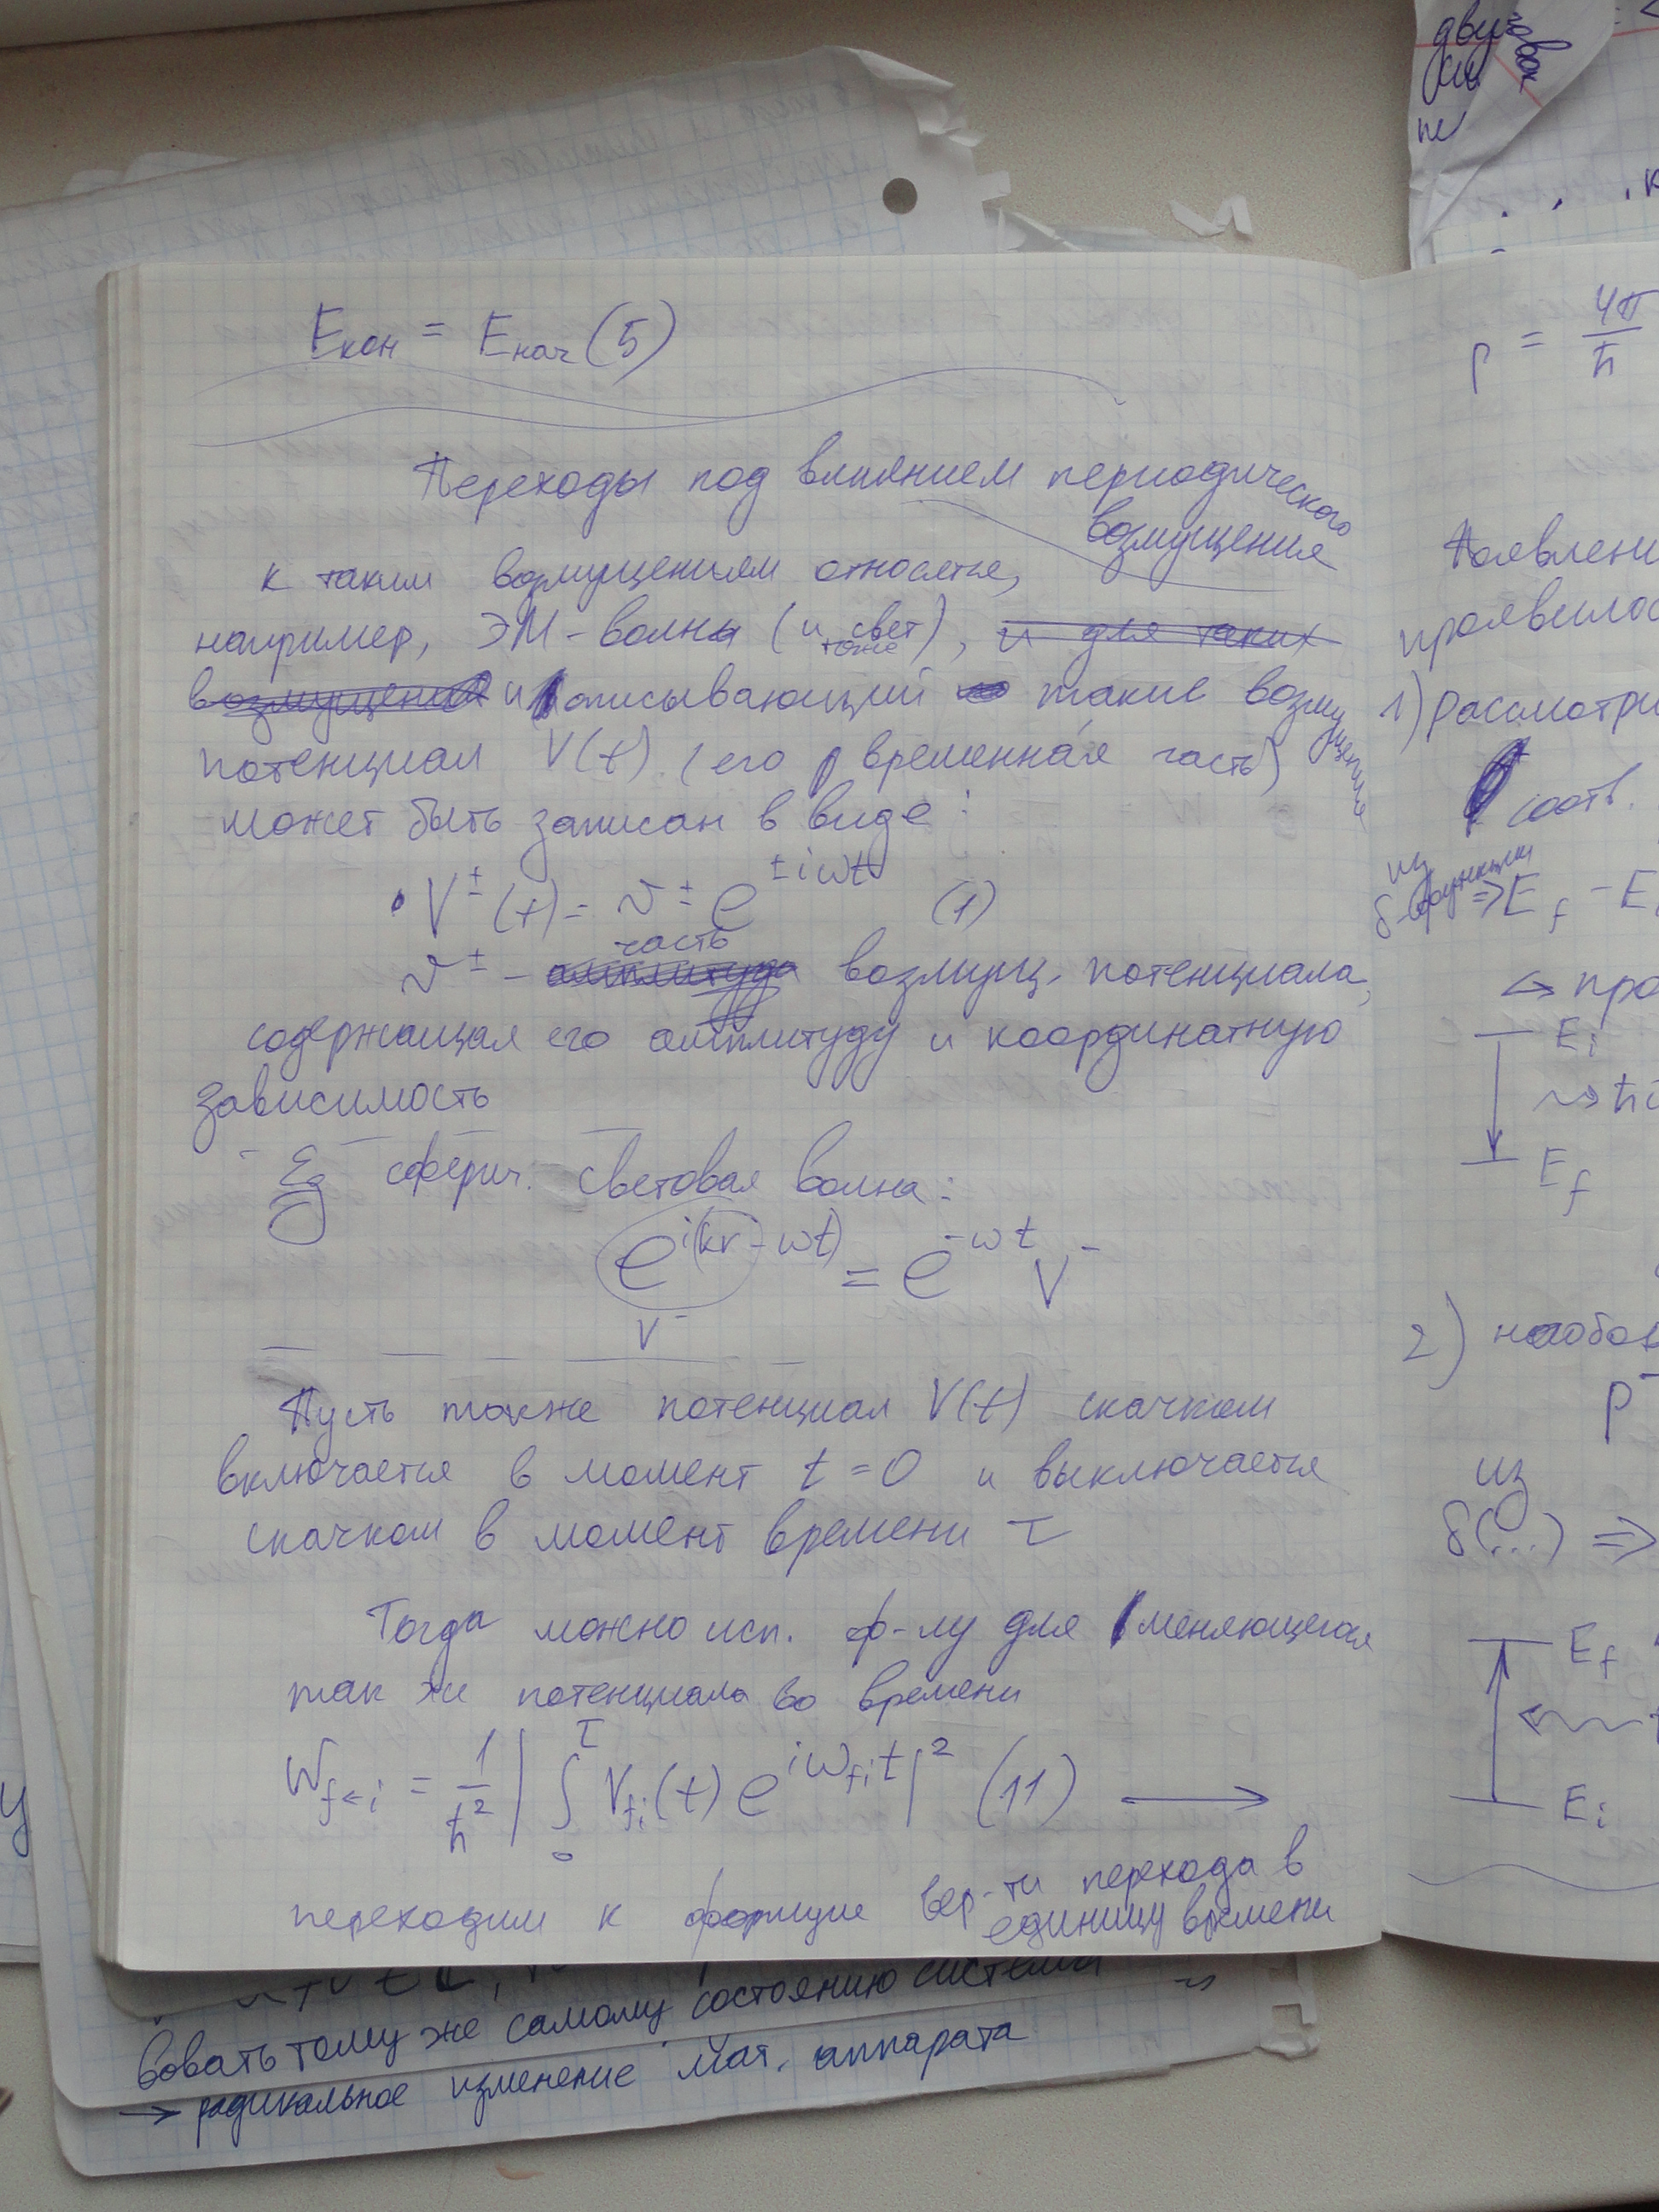 Eкон = Eнач (5)
Переходы под влиянием периодического
возмущения
к таким возмущениям относятся,
например, ЭМ-волны (и свет
тоже), и для таких
возмущений и описывающий такие возмущения
потенциал V(t) (его временная часть)
может быть записан в виде:
• V±(t) = v± e^{±iωt} (1)
часть
v± – амплитуда возмущ. потенциала,
содержащая его амплитуду и координатную
зависимость
Eg сферич. световая волна:
e^{i(kr-ωt)} = e^{-ωt} V⁻
V⁻
Пусть также потенциал V(t) скачком
включается в момент t = 0 и выключается
скачком в момент времени τ
Тогда можно исп. ф-лу для меняющегося
так же потенциала во времени
W_{f←i} = 1/ħ² | ∫₀^τ V_{fi}(t) e^{iω_{fi}t} |² (11) ⟶
переходим к формуле вер-ти перехода в
единицу времени
вовать тому же самому состоянию системы
→ радикальное изменение мат. аппарата
p = 4π/ħ
1) рассмотри
соотв.
из
δ-функции ⇒ E_f – E
↪ про
E_i
E_f
2)
p⁻
из
δ(...) ⇒
E_f
E_i